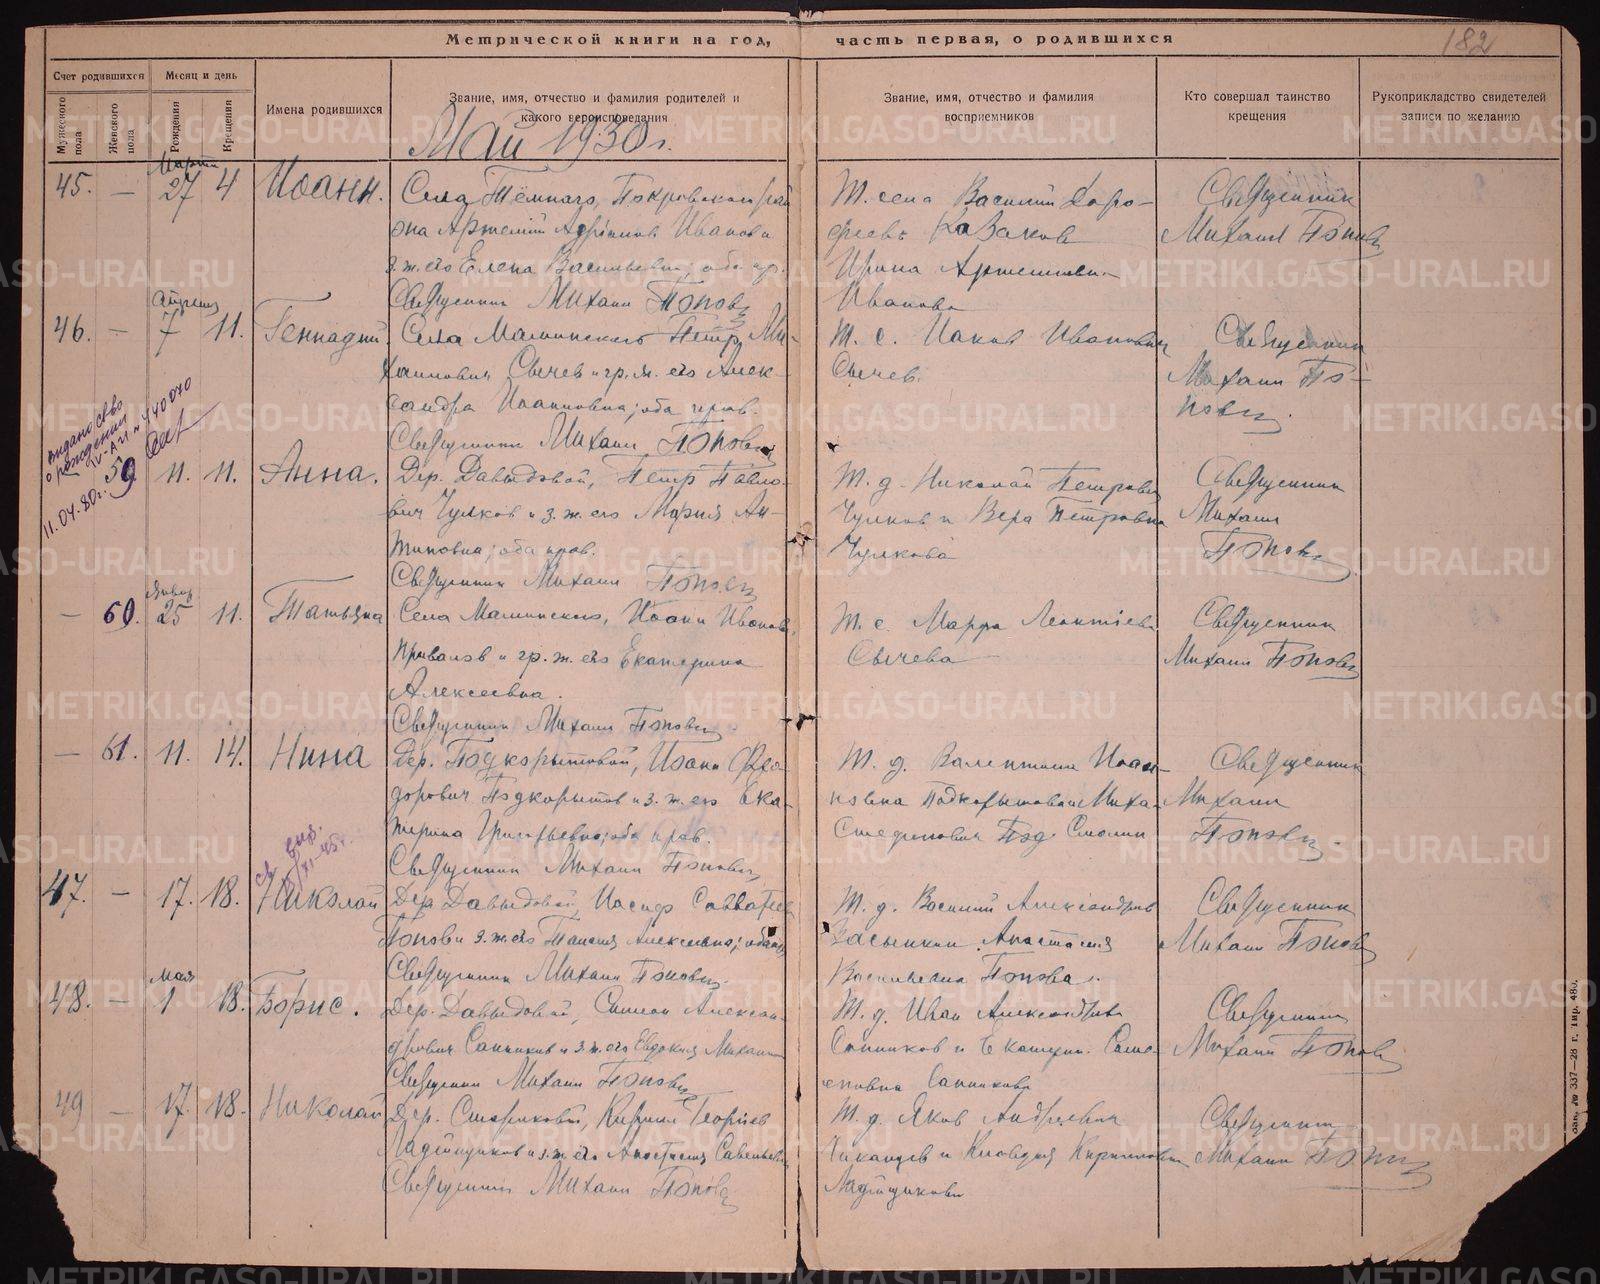 Метрической книги на год, часть первая, о родившихся
182
Счет родившихся
Мужеского пола
Женского пола
Месяц и день
Рождения
Крещения
Имена родившихся
Звание, имя, отчество и фамилия родителей и
какого вероисповедания
Звание, имя, отчество и фамилия
восприемников
Кто совершал таинство
крещения
Рукоприкладство свидетелей
записи по желанию
Май 1930 г.
Марта
45. — 27 4 Иоанн.
Села Тёмнаго, Покровского рай
она Артемий Иванов и
з. ж. его Елена Васильевна; оба пр.
Священник Михаил Попов
Т. села Василий Доро-
феевъ Казаков
Ирина Артемиева
Иванова
Священник
Михаил Попов
Апреля
46. — 7 11. Геннадий.
Села Маминского Петр Ми-
хаилович Сычев и гр. ж. его Алек-
сандра Иоанновна; оба прав.
Священник Михаил Попов
Т. с. Иаков Иванович
Сычев.
Священник
Михаил По-
пов
выдано св-во
о рождении
IV-АИ № 440070
11.04.80г.
59 11. 11. Анна.
Дер. Давыдовой, Петр Павло-
вич Чулков и з. ж. его Мария Ан-
типовна; оба прав.
Священник Михаил Попов
Т. д. Николай Петрович
Чулков и Вера Петровна
Чулкова
Священник
Михаил
Попов
Январ
— 60. 25 11. Татьяна
Села Маминского, Иоанн Иванов.
Привалов и гр. ж. его Екатерина
Алексеевна.
Священник Михаил Попов
Т. с. Марфа Леонтiева
Сычева
Священник
Михаил Попов
— 61. 11. 14. Нина
Дер. Подкорытовой, Иоанн Фео-
дорович Подкорытов и з. ж. его Ека-
терина Григорьевна; оба прав.
Священник Михаил Попов
Т. д. Валентина Иоан-
новна Подкорытова и Миха
Смолин
Священник
Михаил
Попов
47. — 17. 18. Николай
Дер. Давыдовой, Иосиф Савватеев
Попов и з. ж. его Таисия Алексеевна; оба пр
Священник Михаил Попов
Т. д. Василий Александров
Засыпкин Анастасия
Васильевна Попова.
Священник
Михаил Попов
Мая
48. — 1 18. Борис.
Дер. Давыдовой, Симеон Алексан-
дрович Санников и з. ж. его Евдокия Михаил
Священник Михаил Попов
Т. д. Иван Александров
Санников и Екатерин. Симе-
оновна Санникова
Священник
Михаил Попов
49 — 17. 18. Николай
Дер. Стариковой, Кирилл Георгiев
Ладейщиков и з. ж. его Анастасия Савельевн
Священник Михаил Попов
Т. д. Яков Андреевич
Чиканцев и Клавдия Кирилловна
Ладейщикова
Священник
Михаил Попов
Зак. № 337—28 г. Тир. 480.
METRIKI.GASO-URAL.RU